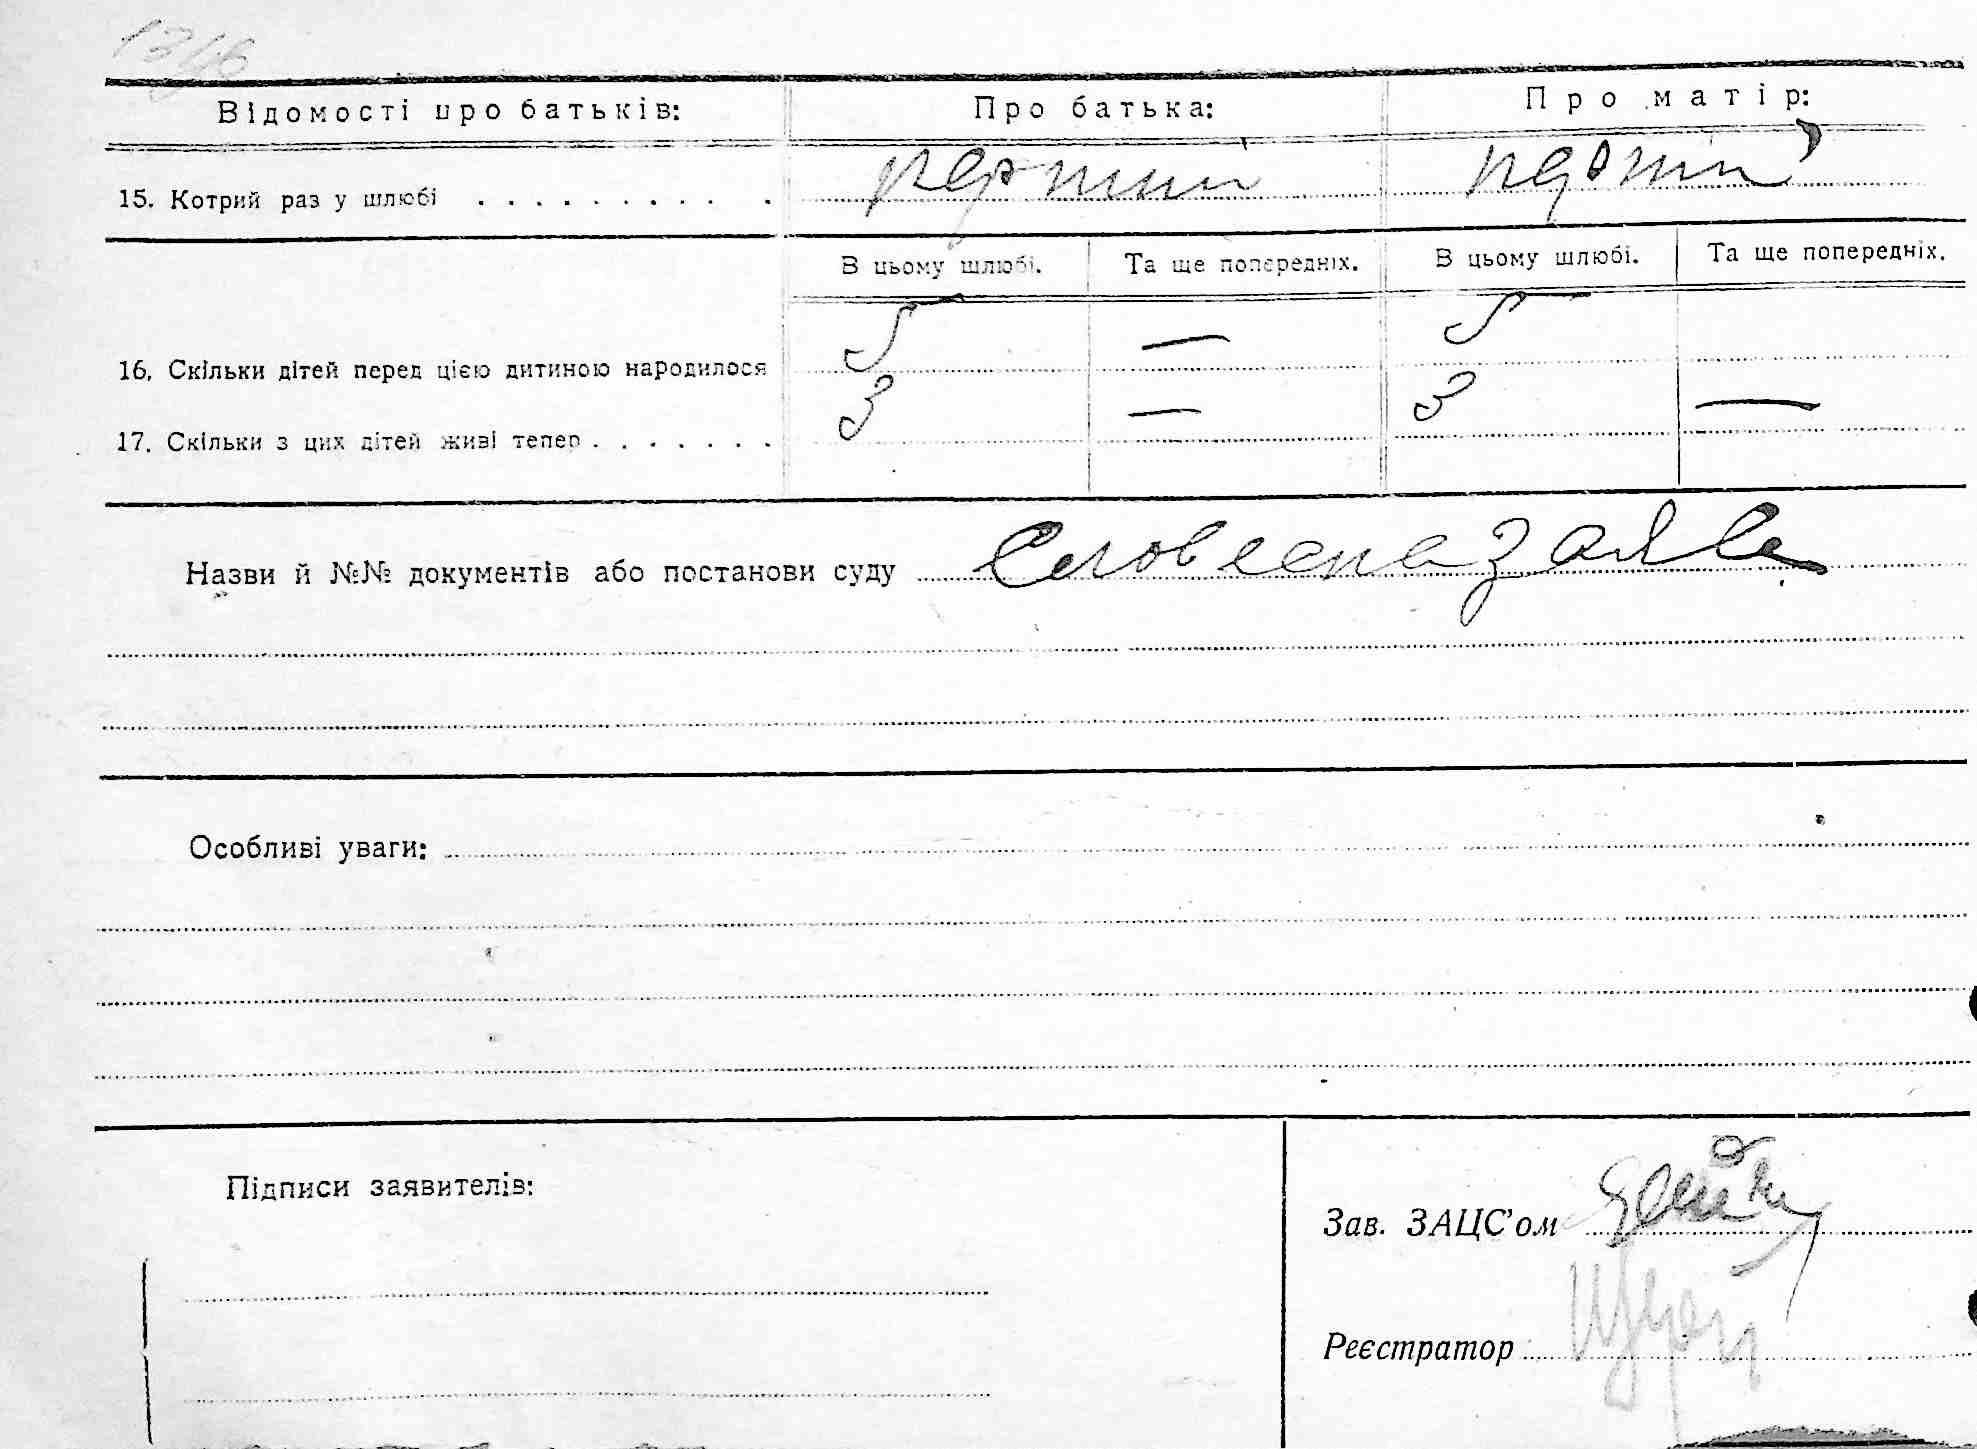 Відомості про батьків: Про батька: Про матір:
15. Котрий раз у шлюбі . . . . . . . . . . . перший перший
В цьому шлюбі. Та ще попередніх. В цьому шлюбі. Та ще попередніх.
16. Скільки дітей перед цією дитиною народилося 5 — 5
17. Скільки з цих дітей живі тепер . . . . . . . 3 — 3 —
Назви й №№ документів або постанови суду Словесна заява
Особливі уваги:
Підписи заявителів:
Зав. ЗАЦС’ом
Реєстратор